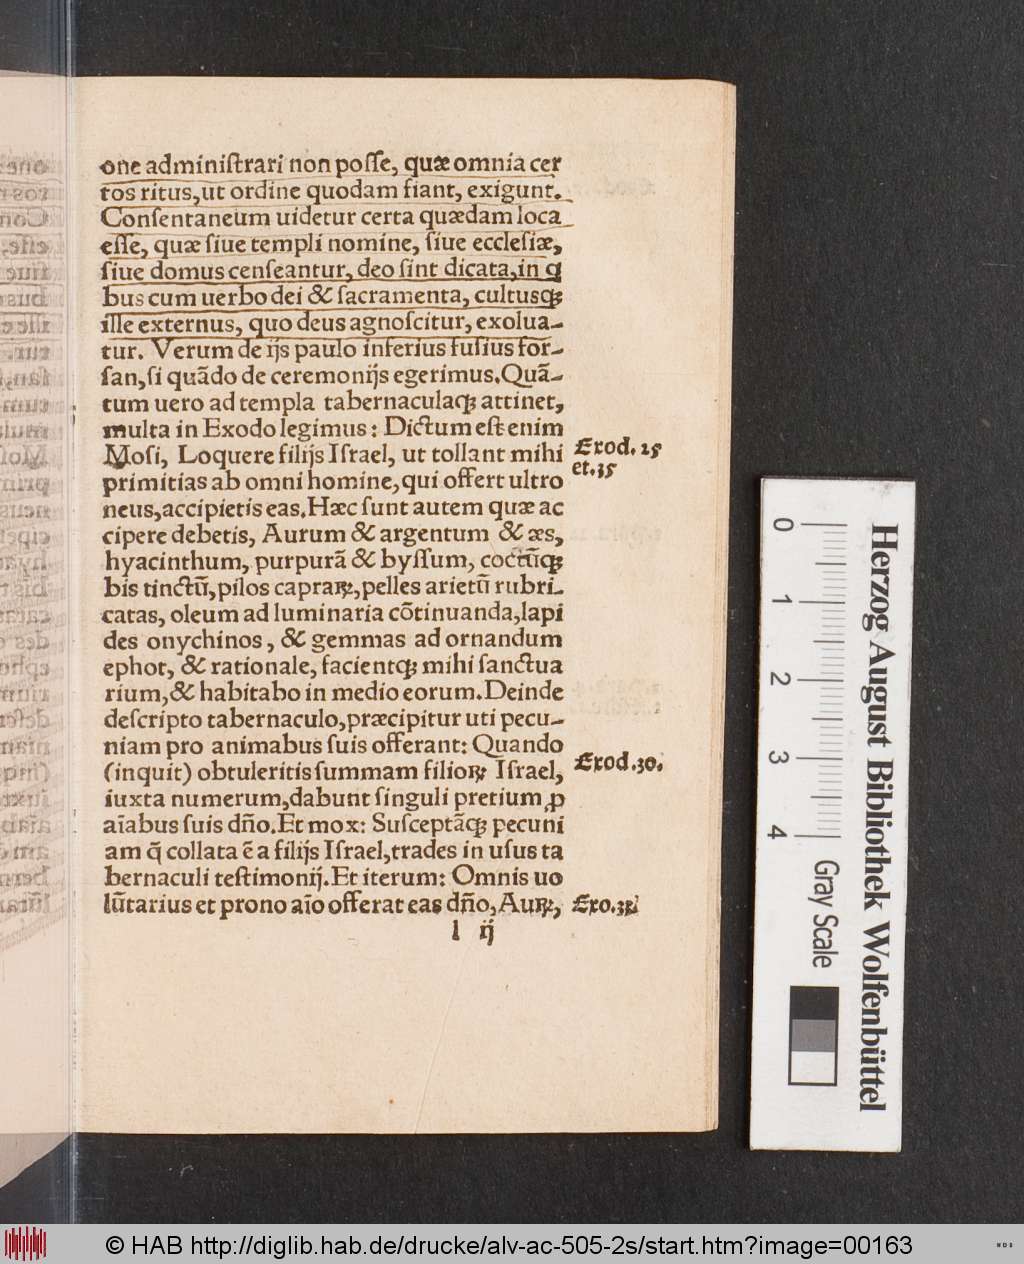 one adminiſtrari non poſſe, quæ omnia cer
tos ritus, ut ordine quodam fiant, exigunt.
Conſentaneum uidetur certa quædam loca
eſſe, quæ ſiue templi nomine, ſiue eccleſiæ,
ſiue domus cenſeantur, deo ſint dicata, in ꝗ
bus cum uerbo dei & ſacramenta, cultusqꝫ
ille externus, quo deus agnoſcitur, exolua-
tur. Verum de ijs paulo inferius fuſius for-
ſan, ſi quãdo de ceremonijs egerimus. Quã-
tum uero ad templa tabernaculaqꝫ attinet,
multa in Exodo legimus: Dictum eſt enim
Moſi, Loquere filijs Iſrael, ut tollant mihi
Exod. 25
et. 35
primitias ab omni homine, qui offert ultro
neus, accipietis eas. Hæc ſunt autem quæ ac
cipere debetis, Aurum & argentum & æs,
hyacinthum, purpurã & byſſum, coctũqꝫ
bis tinctũ, pilos caprarꝝ, pelles arietũ rubri-
catas, oleum ad luminaria cõtinuanda, lapi
des onychinos, & gemmas ad ornandum
ephot, & rationale, facientqꝫ mihi ſanctua
rium, & habitabo in medio eorum. Deinde
deſcripto tabernaculo, præcipitur uti pecu-
niam pro animabus ſuis offerant: Quando
(inquit) obtuleritis ſummam filioꝝ Iſrael,
Exod. 30.
iuxta numerum, dabunt ſinguli pretium ꝓ
aĩabus ſuis dño. Et mox: Suſceptãqꝫ pecuni
am q̃ collata ẽ a filijs Iſrael, trades in uſus ta
bernaculi teſtimonij. Et iterum: Omnis uo
lũtarius et prono aĩo offerat eas dño, Auꝝ,
Exo. 35.
l ij
0 1 2 3 4
Gray Scale
Herzog August Bibliothek Wolfenbüttel
© HAB http://diglib.hab.de/drucke/alv-ac-505-2s/start.htm?image=00163